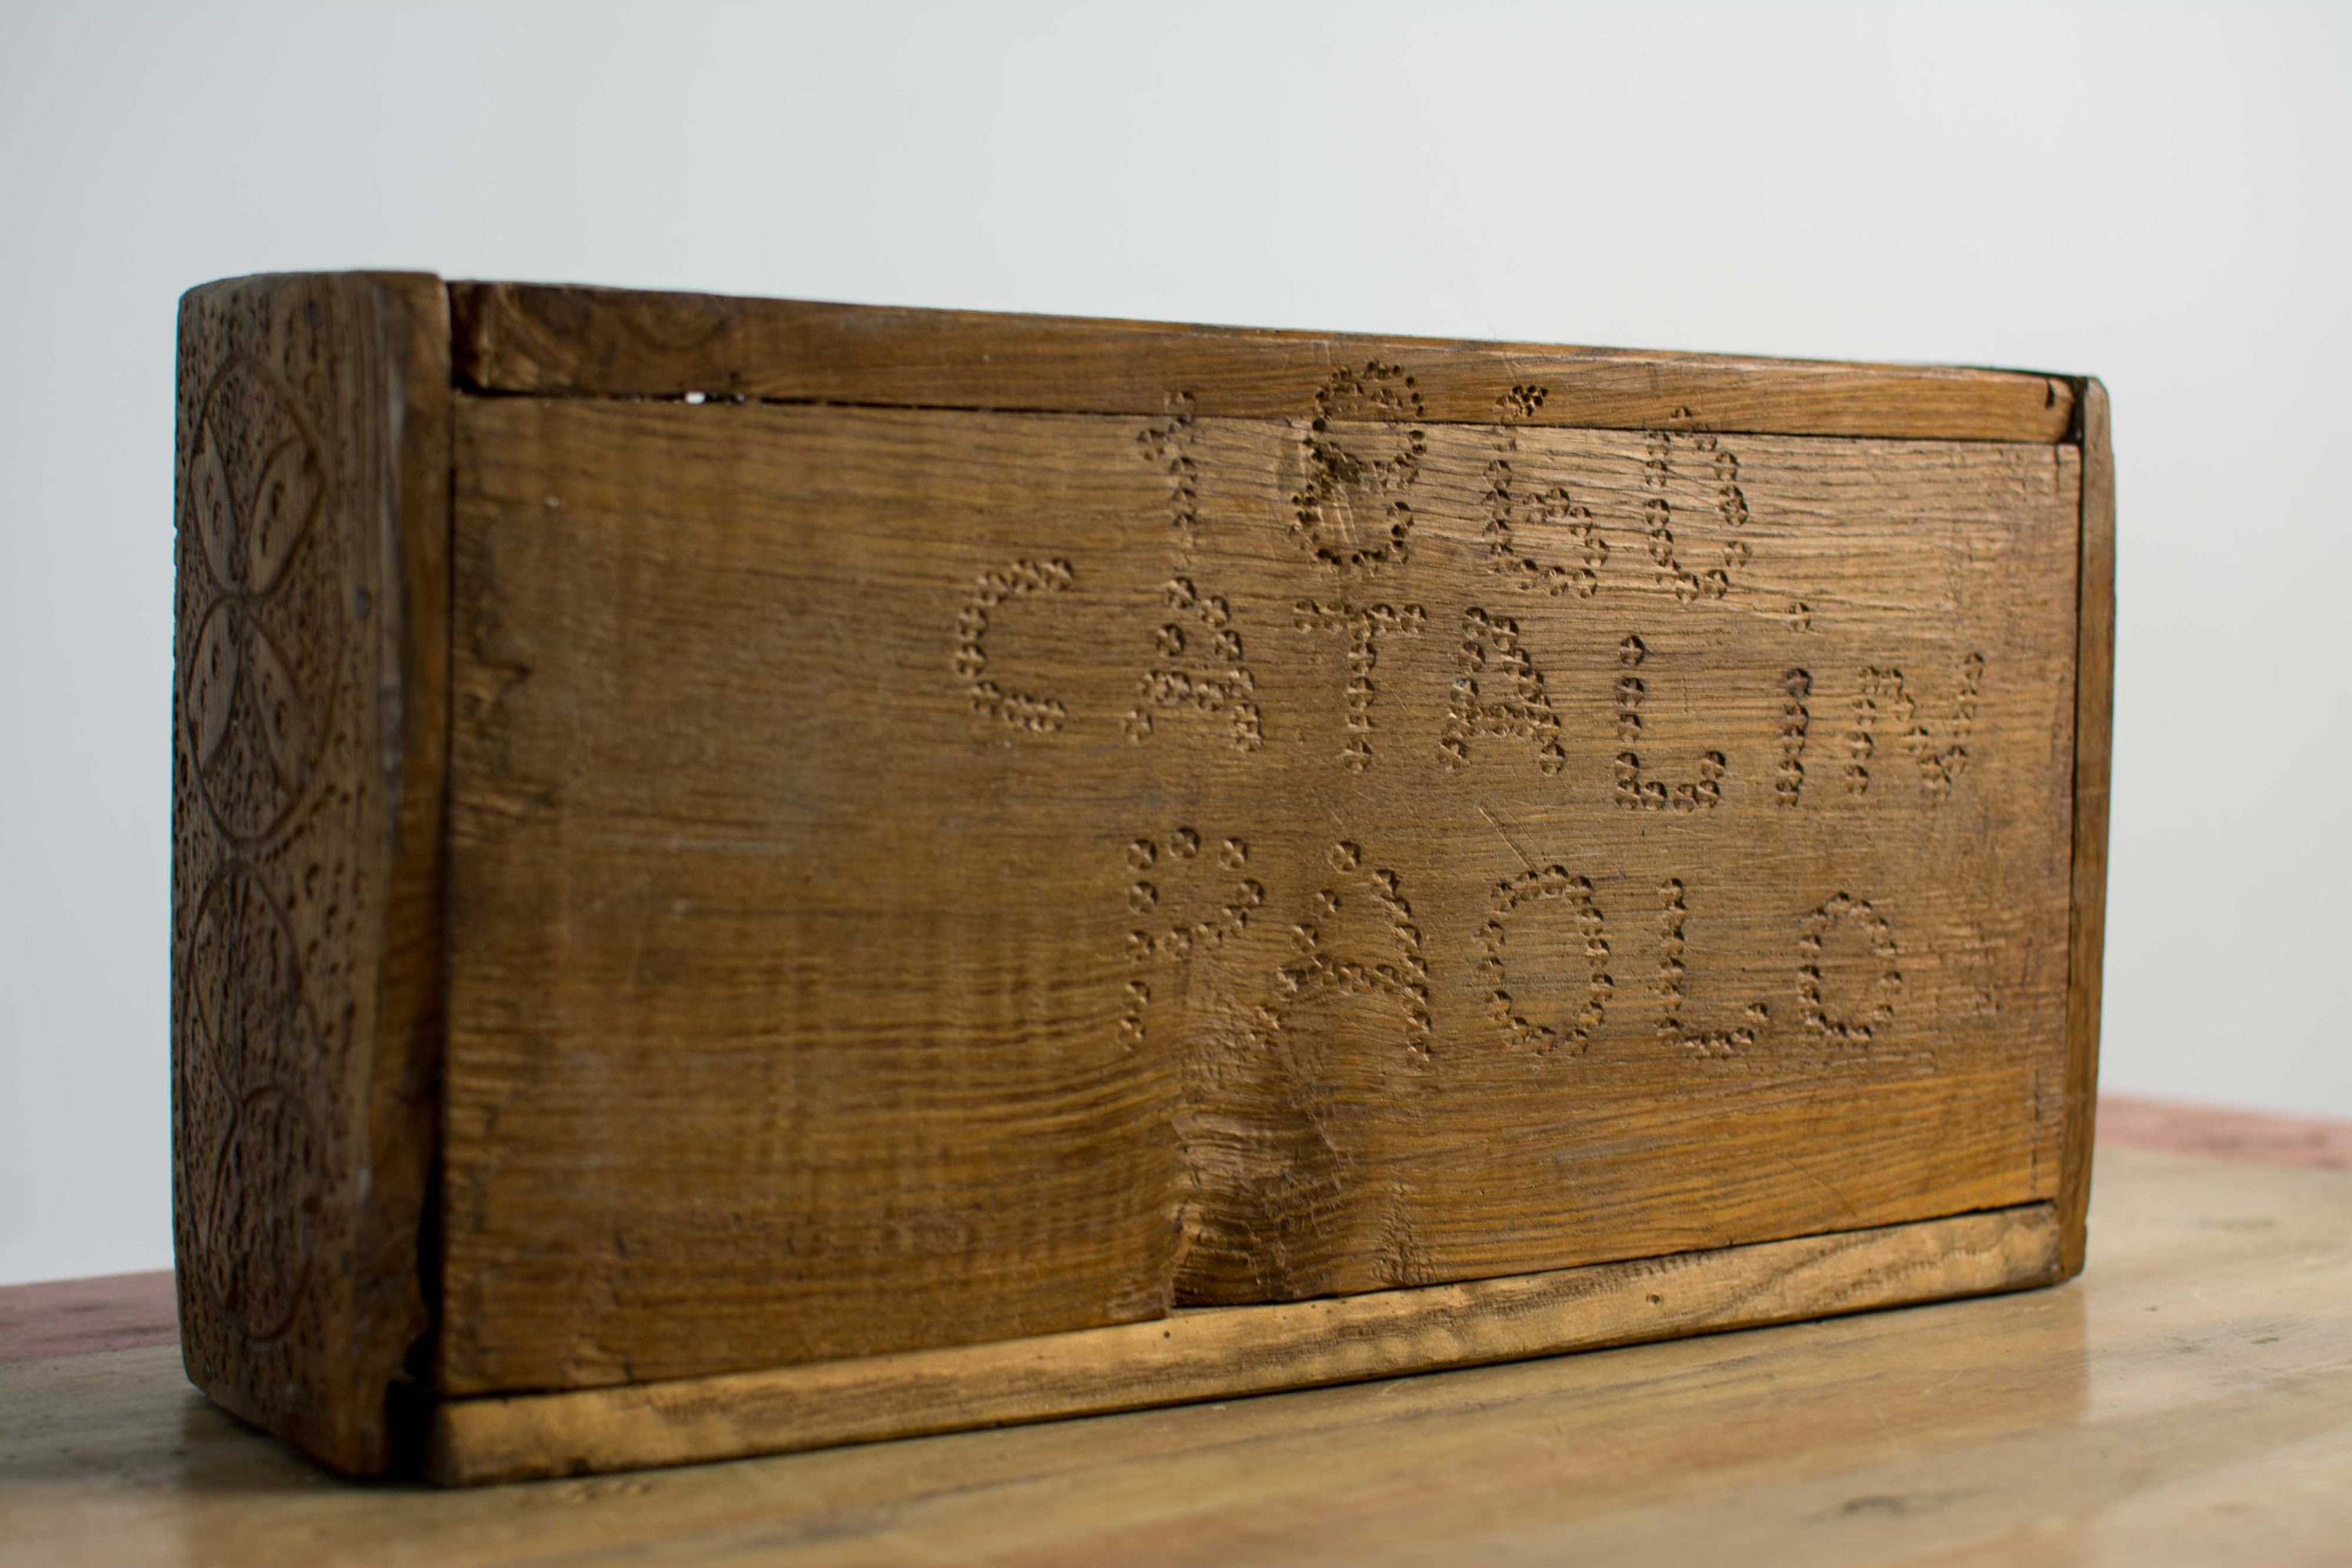 1860
CATALIN
PAOLO